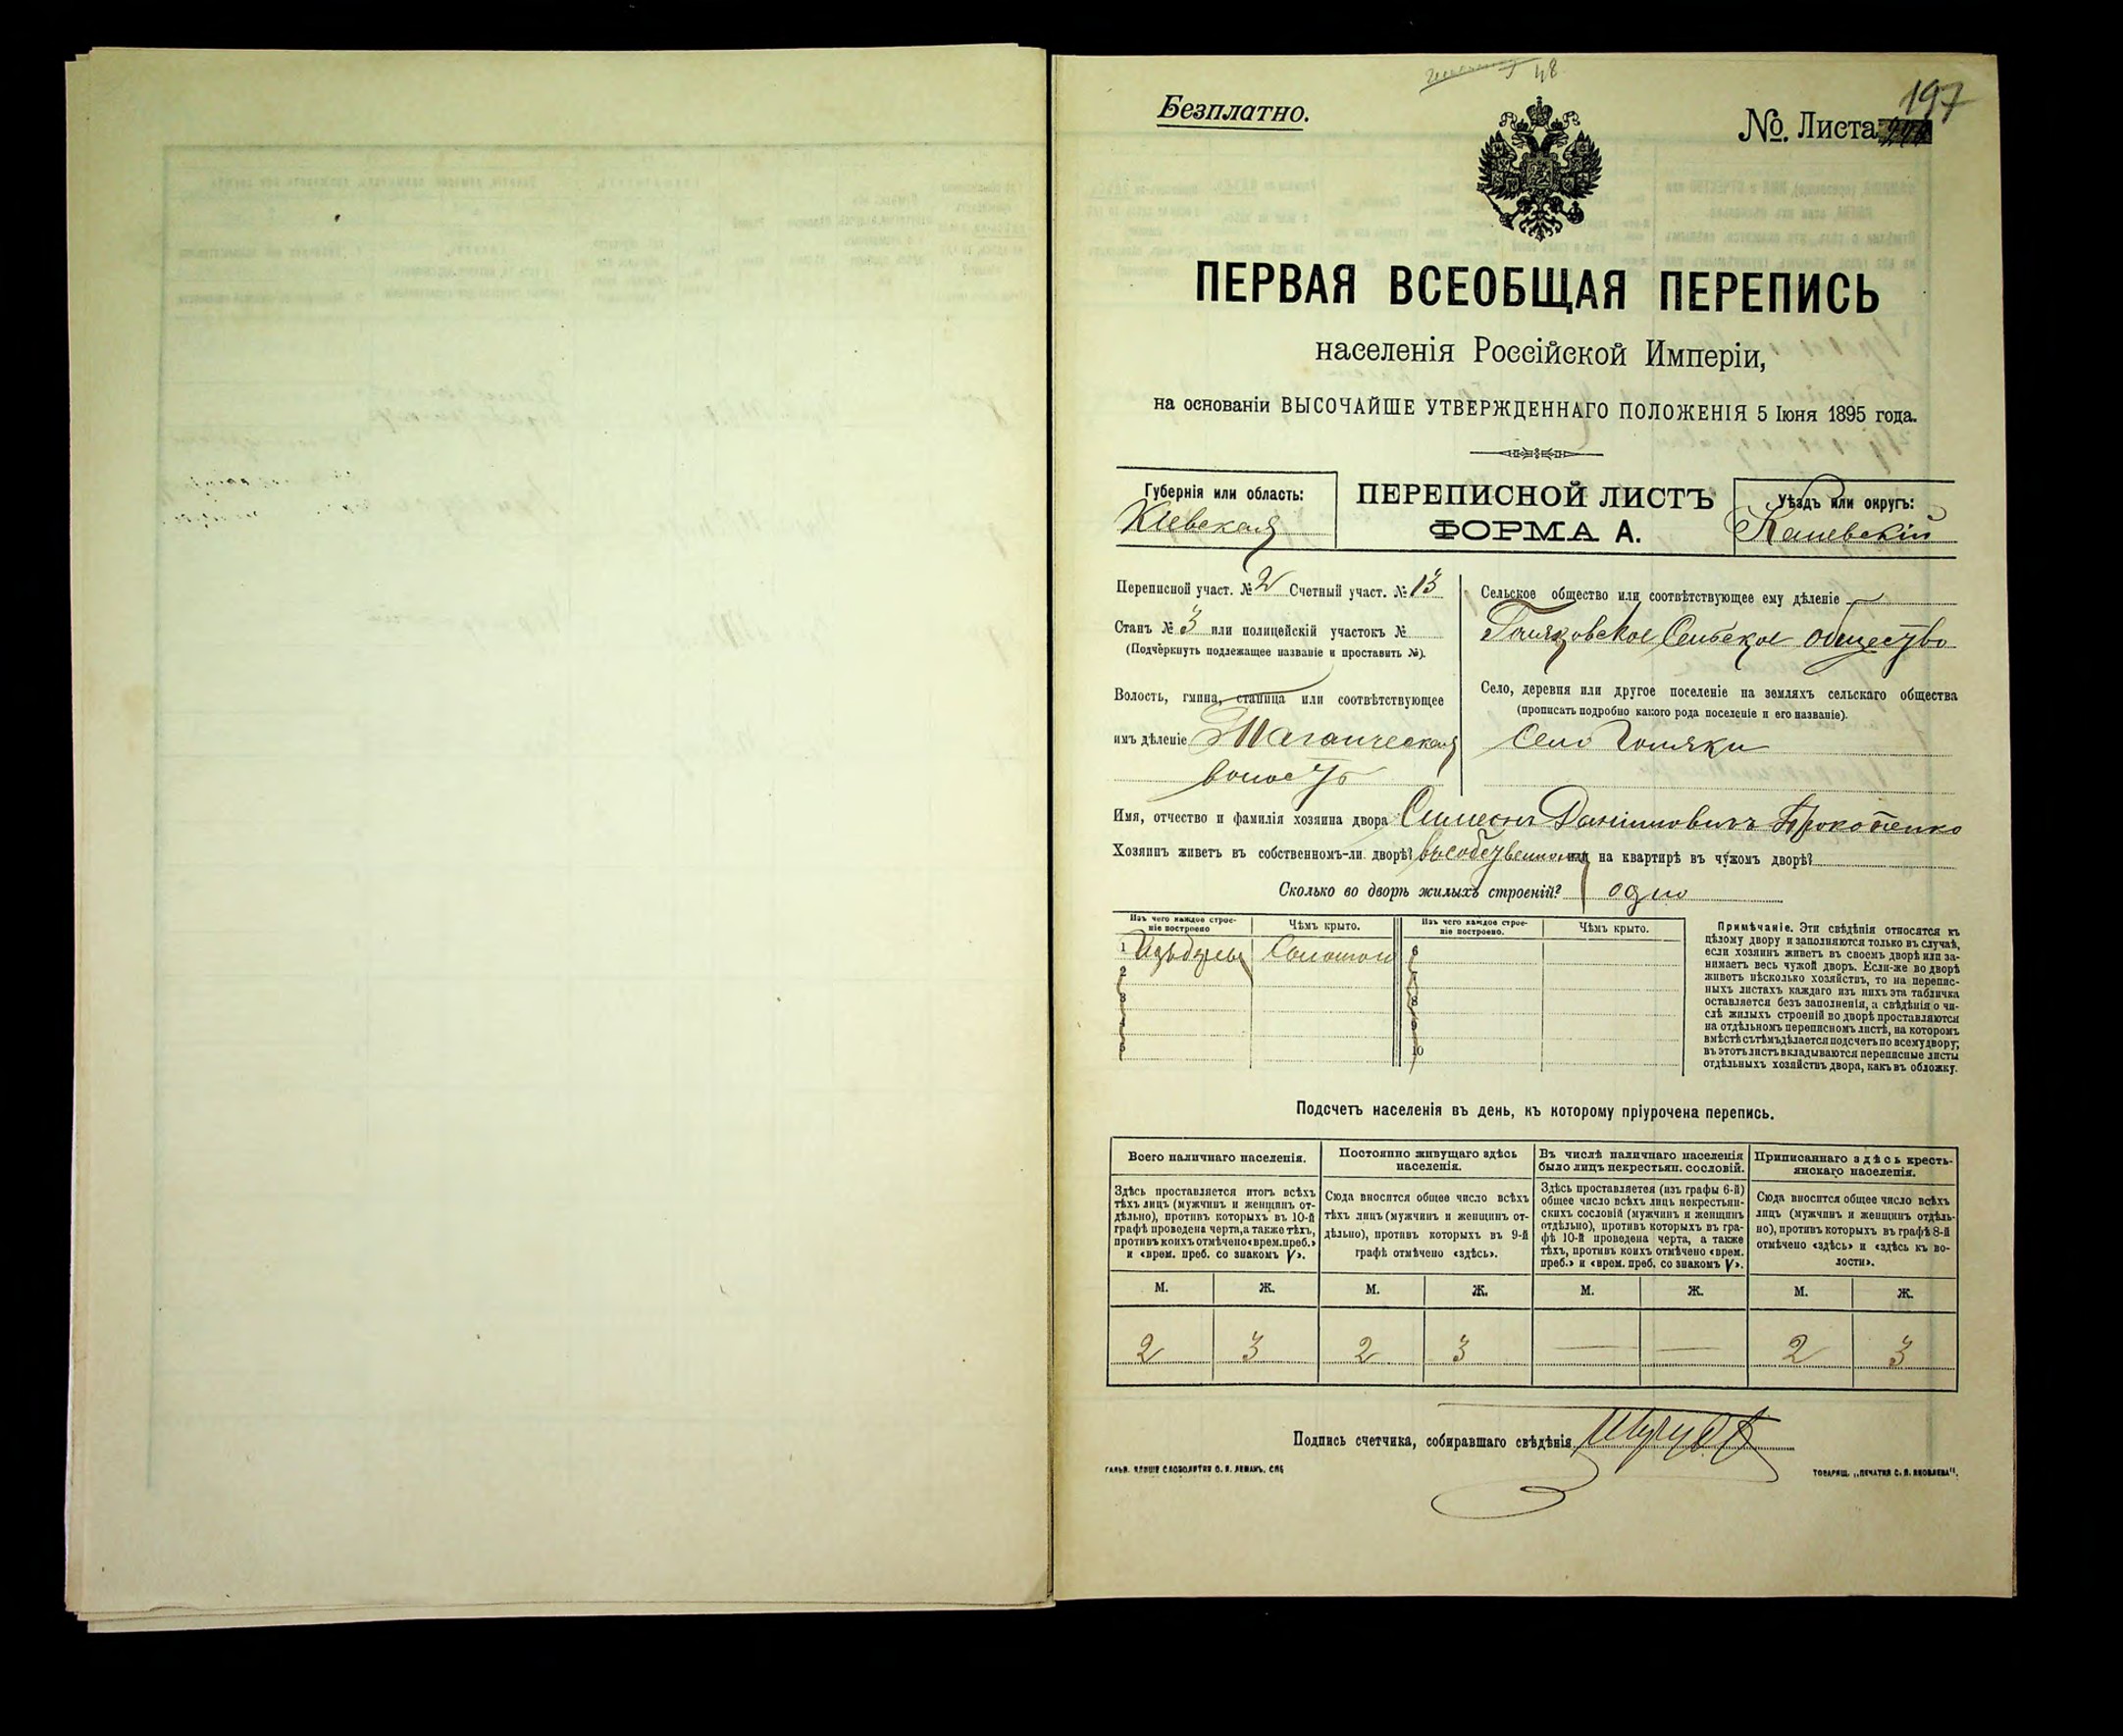 48
Безплатно.
197
№. Листа
ПЕРВАЯ ВСЕОБЩАЯ ПЕРЕПИСЬ
населенія Россійской Имперіи,
на основаніи ВЫСОЧАЙШЕ УТВЕРЖДЕННАГО ПОЛОЖЕНІЯ 5 Іюня 1895 года.
Губернія или область:
Кіевская
ПЕРЕПИСНОЙ ЛИСТЪ
ФОРМА А.
Уѣздъ или округъ:
Каневскій
Переписной участ. № 2 Счетный участ. № 13
Станъ № 3 или полицейскій участокъ №
(Подчеркнуть подлежащее названіе и проставить №).
Волость, гмина, станица или соотвѣтствующее
имъ дѣленіе
волость
Сельское общество или соотвѣтствующее ему дѣленіе
Сельское общество
Село, деревня или другое поселеніе на земляхъ сельскаго общества
(прописать подробно какого рода поселеніе и его названіе).
Село Голяки
Имя, отчество и фамилія хозяина двора Симеонъ Даніиловичъ Прокопенко
Хозяинъ живетъ въ собственномъ-ли дворѣ? въ собственномъ или на квартирѣ въ чужомъ дворѣ?
Сколько во дворѣ жилыхъ строеній? одно
Изъ чего каждое строе-
ніе построено
Чѣмъ крыто.
Изъ чего каждое строе-
ніе построено.
Чѣмъ крыто.
1 Соломой 6
2 7
3 8
4 9
5 10
Примѣчаніе. Эти свѣдѣнія относятся къ
цѣлому двору и заполняются только въ случаѣ,
если хозяинъ живетъ въ своемъ дворѣ или за-
нимаетъ весь чужой дворъ. Если-же во дворѣ
живетъ нѣсколько хозяйствъ, то на перепис-
ныхъ листахъ каждаго изъ нихъ эта табличка
оставляется безъ заполненія, а свѣдѣнія о чи-
слѣ жилыхъ строеній во дворѣ проставляются
на отдѣльномъ переписномъ листѣ, на которомъ
вмѣстѣ съ тѣмъ дѣлается подсчетъ по всему двору;
въ этотъ листъ вкладываются переписные листы
отдѣльныхъ хозяйствъ двора, какъ въ обложку.
Подсчетъ населенія въ день, къ которому пріурочена перепись.
Всего наличнаго населенія.
Здѣсь проставляется итогъ всѣхъ
тѣхъ лицъ (мужчинъ и женщинъ от-
дѣльно), противъ которыхъ въ 10-й
графѣ проведена черта, а также тѣхъ,
противъ коихъ отмѣчено «врем. преб.»
и «врем. преб. со знакомъ V».
Постоянно живущаго здѣсь
населенія.
Сюда вносится общее число всѣхъ
тѣхъ лицъ (мужчинъ и женщинъ от-
дѣльно), противъ которыхъ въ 9-й
графѣ отмѣчено «здѣсь».
Въ числѣ наличнаго населенія
было лицъ некрестьян. сословій.
Здѣсь проставляется (изъ графы 6-й)
общее число всѣхъ лицъ некрестьян-
скихъ сословій (мужчинъ и женщинъ
отдѣльно), противъ которыхъ въ гра-
фѣ 10-й проведена черта, а также
тѣхъ, противъ коихъ отмѣчено «врем.
преб.» и «врем. преб. со знакомъ V».
Приписаннаго здѣсь кресть-
янскаго населенія.
Сюда вносится общее число всѣхъ
лицъ (мужчинъ и женщинъ отдѣль-
но), противъ которыхъ въ графѣ 8-й
отмѣчено «здѣсь» и «здѣсь къ во-
лости».
М. Ж. М. Ж. М. Ж. М. Ж.
2 3 2 3 — — 2 3
Подпись счетчика, собиравшаго свѣдѣнія
ГАЛЬВ. КЛИШЕ СЛОВОЛИТНИ О. И. ЛЕМАНЪ. СПБ
ТОВАРИЩ. „ПЕЧАТНЯ С. П. ЯКОВЛЕВА".